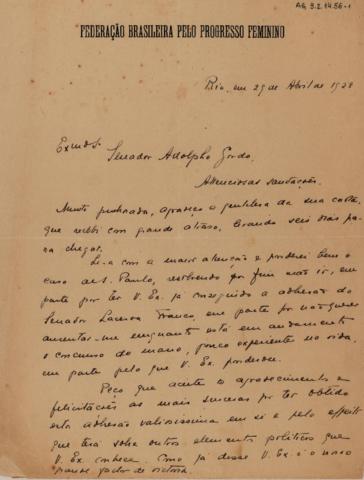 AG 3.2.14.56-1
FEDERAÇÃO BRASILEIRA PELO PROGRESSO FEMININO
Rio, em 29 de Abril de 1928
Exmo Sr.
Senador Adolpho Gordo.
Attenciosas saudações.
Muito penhorada, agradeço a gentileza da sua carta,
que recebi com grande atraso, levando seis dias pa-
ra chegar.
Li-a com a maior attenção e ponderei bem o
caso de S. Paulo, resolvendo por fim não ir, em
parte por ter V. Ex. já conseguido a adhesão do
Senador Lacerda Franco, em parte por não querer
ausentar-me emquanto está em andamento
o concurso do mano, pouco experiente na vida,
em parte pelo que V. Ex. ponderou.
Peço que aceite o agradecimento e
felicitações as mais sinceras por ter obtido
esta adhesão valiosissima em si e pelo effeito
que terá sobre outros elementos politicos que
V. Ex. conhece. Como já disse V. Ex. é o nosso
grande factor de victoria.